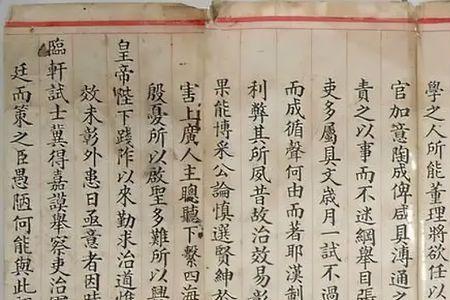 學之人所能董理將欲任以
官加意陶成俾咸具溥通
責之以事而不迷綱舉目張
吏多屬具文歲月一試不過
而成循聲何由而著耶漢制
利弊其所夙昔故治效易彰
果能博采公論慎選賢紳於
害上廣人主聰聽下繫四海
殷憂所以啟聖多難所以興
皇帝陛下踐阼以來勤求治道惟
效未彰外患日亟意者因時
臨軒試士冀得嘉謨舉察吏治
廷而策之臣愚陋何能與此